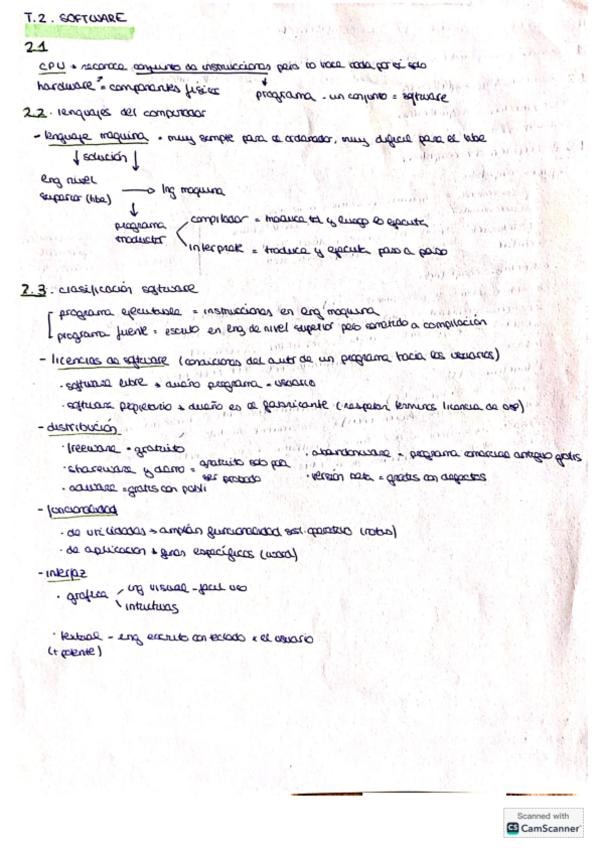 T.2. SOFTWARE
2.1
CPU → reconoce conjunto de instrucciones pero lo hace cada por sí solo
hardware = componentes físicos
programa - un conjunto = software
2.2. lenguajes del computador
- lenguaje maquina = muy simple para el ordenador, muy dificil para el
↓ solución ↓
leng nivel
superior → lng maquina
↓
programa
traductor
compilador = traduce tol y luego lo ejecuta
interprete = traduce y ejecuta paso a paso
2.3. clasificación software
programa ejecutable = instrucciones en leng maquina
programa fuente = escrito en leng de nivel superior pero sometido a compilación
- licencias de software (condiciones del autor de un programa hacia los usuarios)
· software libre → dueño programa = usuario
· software propietario → dueño es el fabricante (respetar terminos licencia de uso)
- distribución
· freeware = gratuito
· shareware y demo = gratuito solo para
ser probado
· adware = gratis con publi
· abandonware = programa comercial antiguo gratis
· versión beta = gratis con defectos
- funcionalidad
· de utilidades → amplían funcionalidad sist. operativo
· de aplicacion → fines específicos (word)
- interfaz
· grafica
lng visual - facil uso
intuitivas
· textual - leng escrito con teclado x el usuario
(+ potente)
Scanned with
CS CamScanner